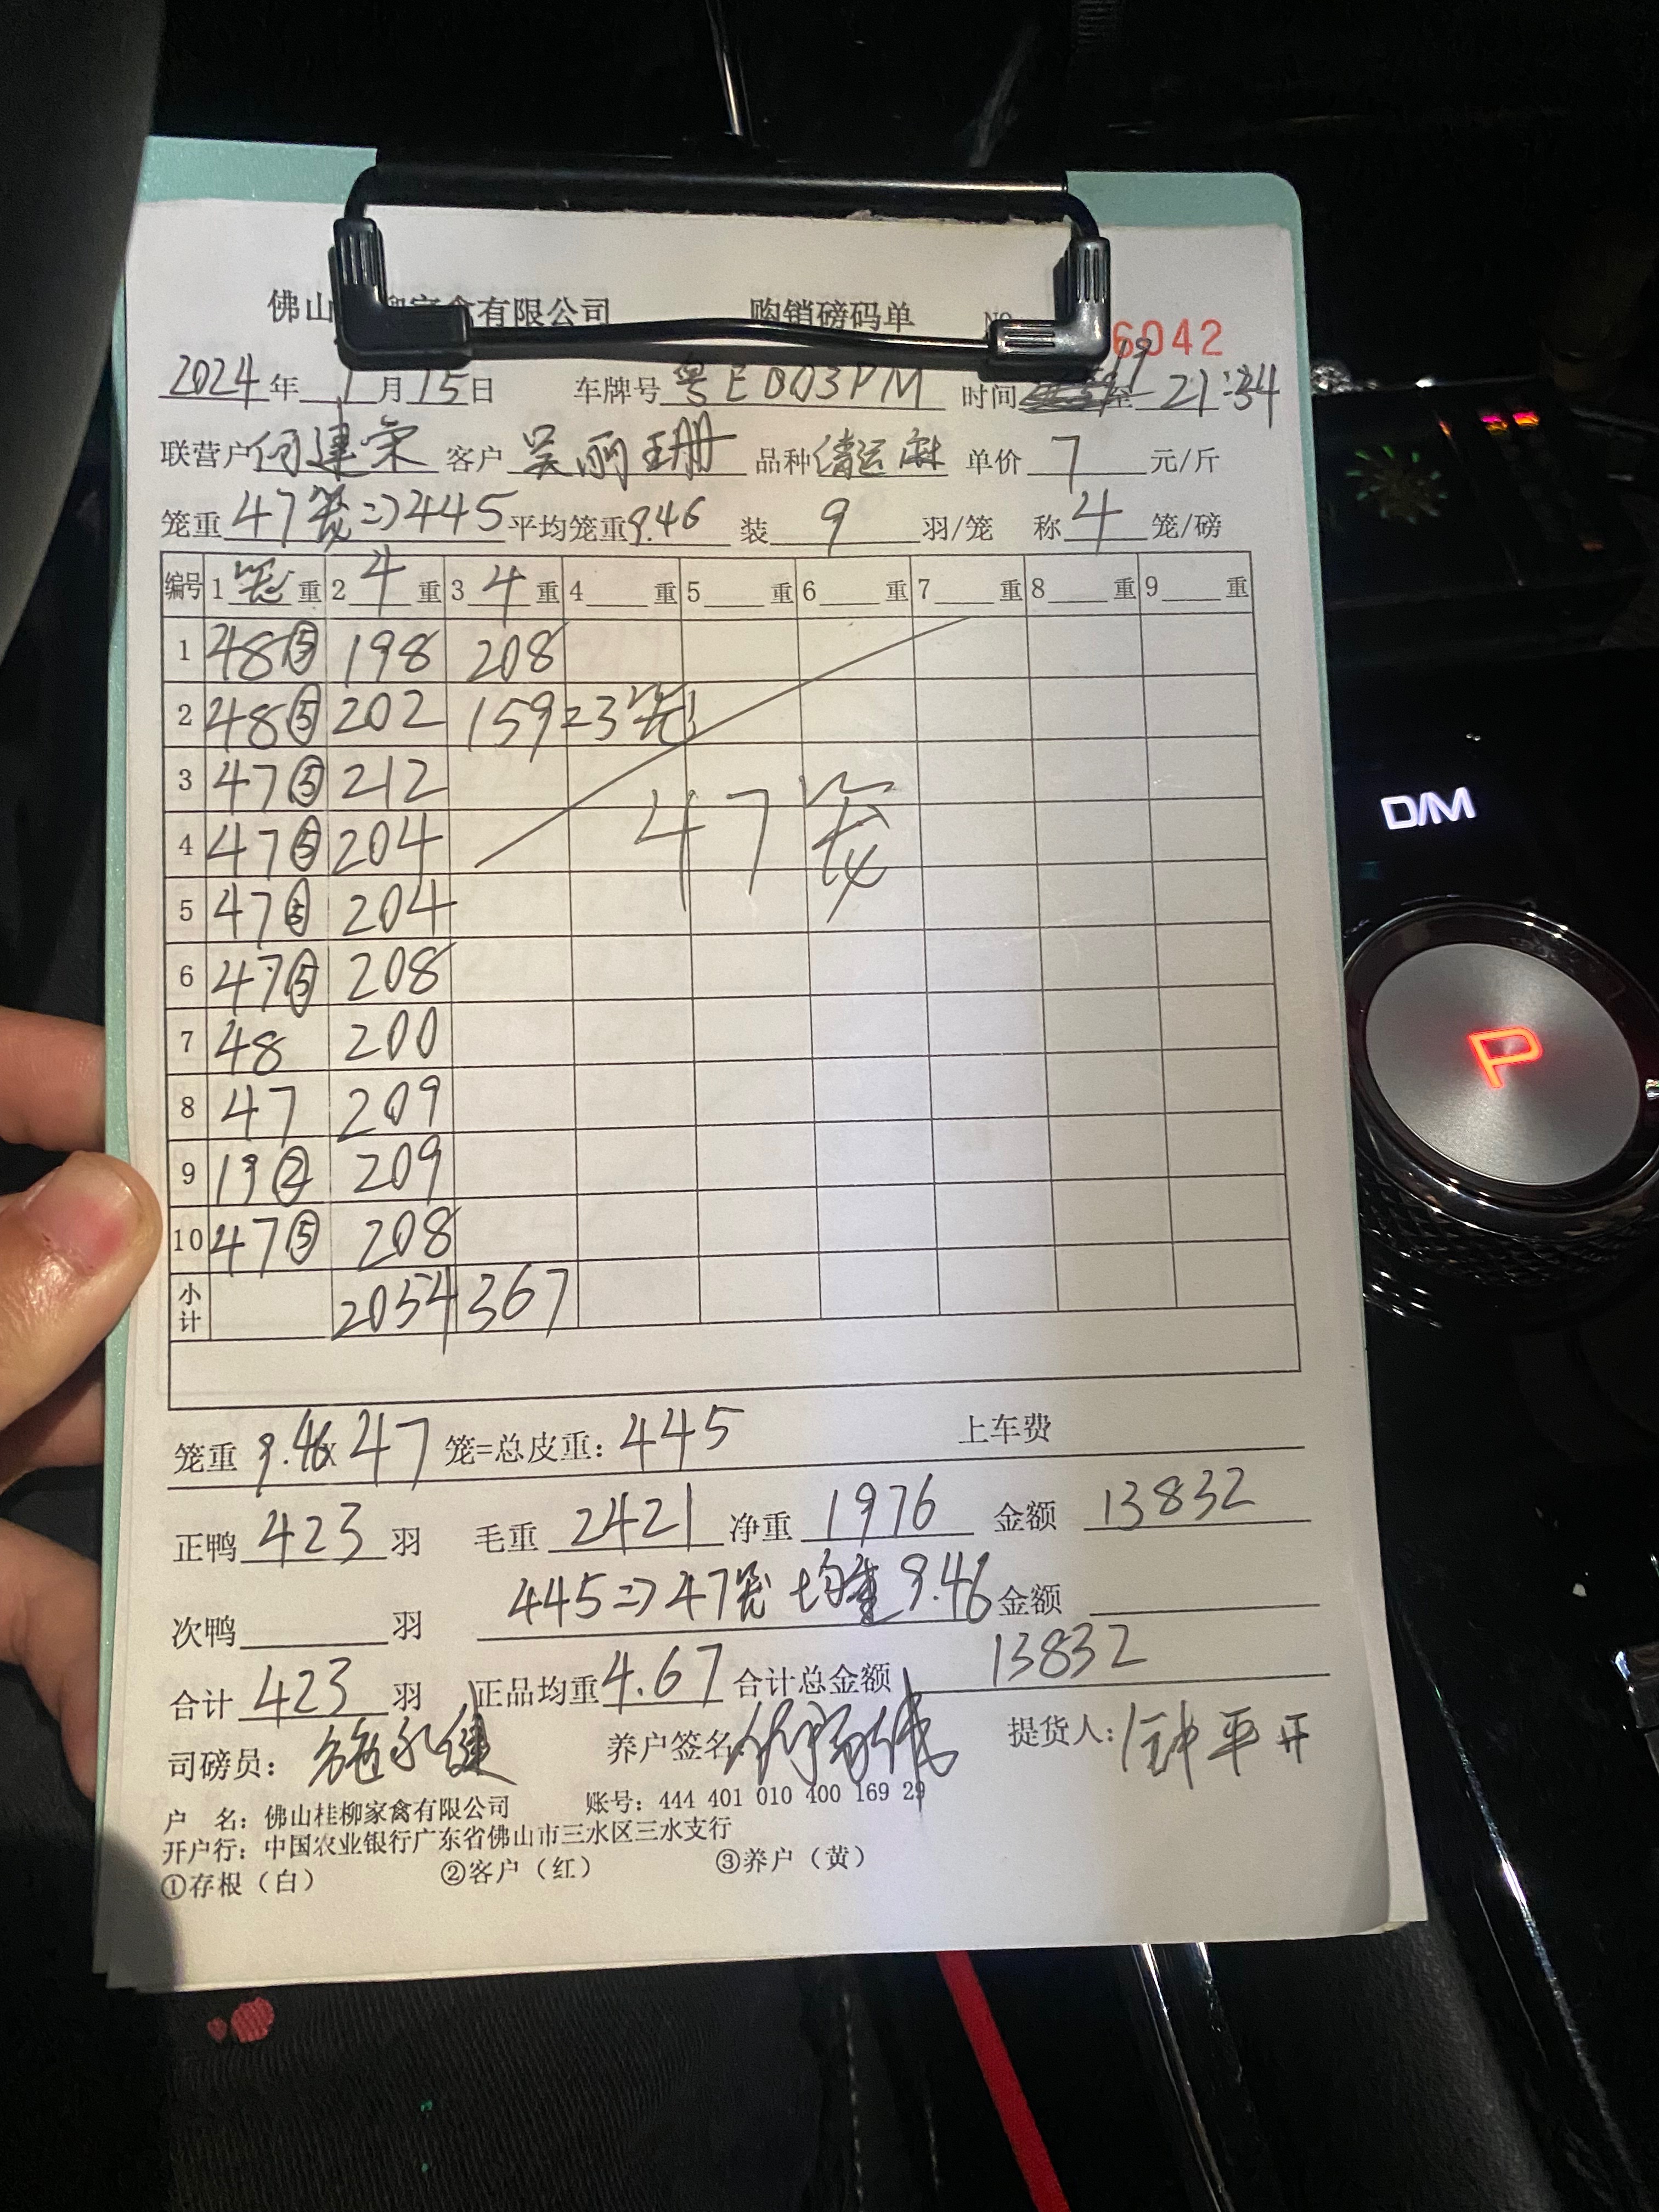 佛山 柳家禽有限公司 购销磅码单 6042
2024年 1月15日 车牌号 粤E D03PM 时间 至 21:34
联营户 何建荣 客户 吴丽珊 品种 清远麻 单价 7 元/斤
笼重 47笼=>445 平均笼重 9.46 装 9 羽/笼 称 4 笼/磅
编号 1 笼 重 2 4 重 3 4 重 4 重 5 重 6 重 7 重 8 重 9 重
1 48⑤ 198 208
2 48⑤ 202 159=3笼
3 47⑤ 212
4 47⑤ 204 47笼
5 47⑤ 204
6 47⑤ 208
7 48 200
8 47 209
9 19② 209
10 47⑤ 208
小计 2054 367
笼重 9.46x 47 笼=总皮重: 445 上车费
正鸭 423 羽 毛重 2421 净重 1976 金额 13832
次鸭 羽 445=>47笼 均重9.46 金额
合计 423 羽 正品均重 4.67 合计总金额 13832
司磅员: 施永健 养户签名 提货人: 钟平开
户 名: 佛山桂柳家禽有限公司 账号: 444 401 010 400 169 29
开户行: 中国农业银行广东省佛山市三水区三水支行
①存根（白） ②客户（红） ③养户（黄）
D/M
P